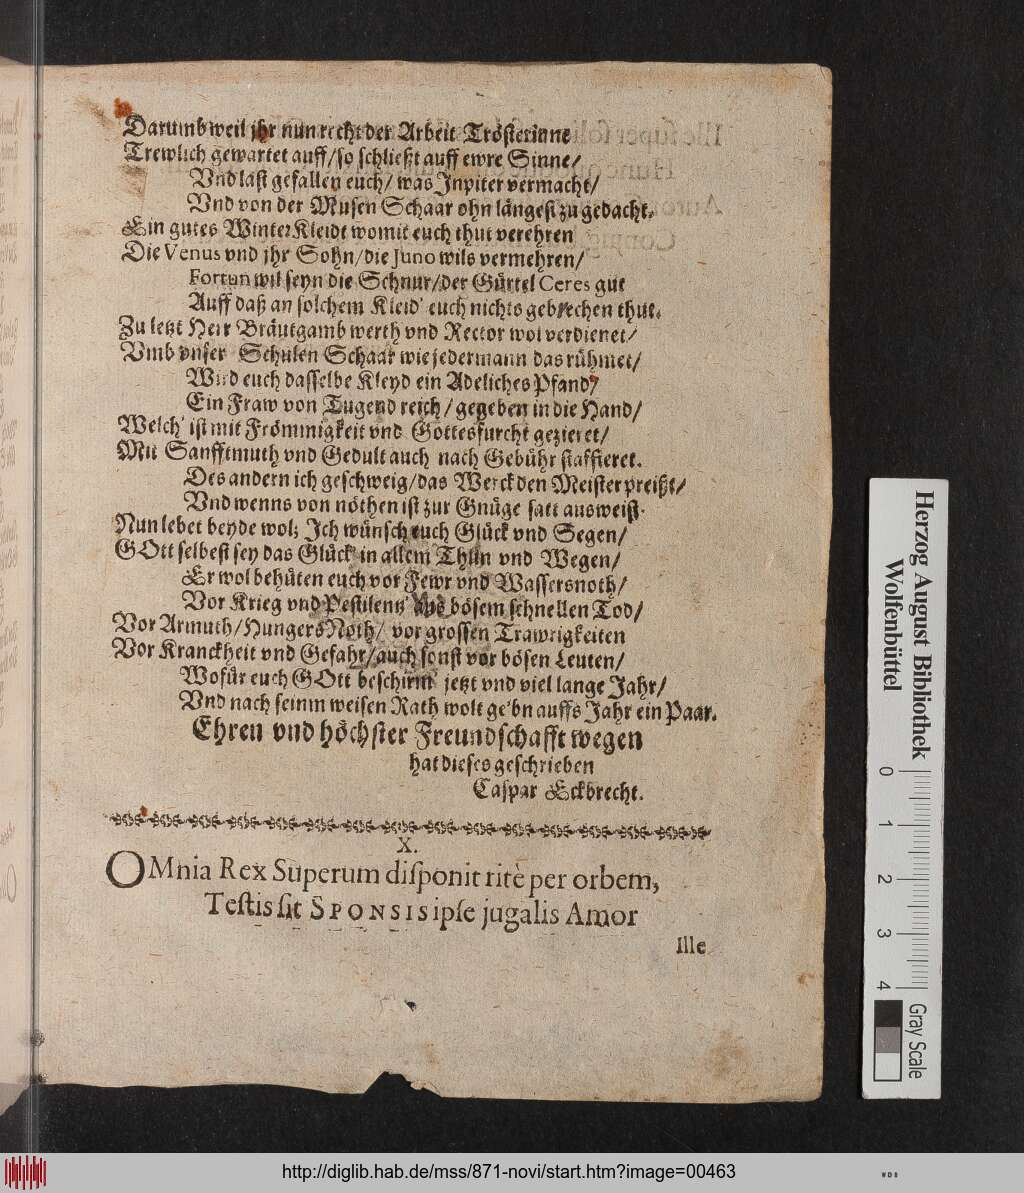 Darumb weil jhr nun recht der Arbeit Trösterinne
Trewlich gewartet auff/ so schließt auff ewre Sinne/
Vnd last gefallen euch/ was Jupiter vermacht/
Vnd von der Musen Schaar ohn längest zu gedacht.
Ein gutes Winter Kleidt womit euch thut verehren
Die Venus vnd jhr Sohn/ die Juno wils vermehren/
Fortun wil seyn die Schnur/ der Gürtel Ceres gut
Auff daß an solchem Kleid' euch nichts gebrechen thut.
Zu letzt Herr Bräutgamb werth vnd Rector wol verdienet/
Vmb vnser Schulen Schaar wie jedermann das rühmet/
Wird euch dasselbe Kleyd ein Adeliches Pfand/
Ein Fraw von Tugend reich/ gegeben in die Hand/
Welch' ist mit Frömmigkeit vnd Gottesfurcht gezieret/
Mit Sanfftmuth vnd Gedult auch nach Gebühr staffieret.
Des andern ich geschweig/ das Werck den Meister preißt/
Vnd wenns von nöthen ist zur Gnüge satt ausweist.
Nun lebet beyde wol; Ich wünsch euch Glück vnd Segen/
GOtt selbest sey das Glück' in allem Thun vnd Wegen/
Er wol behüten euch vor Fewr vnd Wassersnoth/
Vor Krieg vnd Pestilentz' aus bösem schnellen Tod/
Vor Armuth/ Hungers Noth/ vor grossen Trawrigkeiten
Vor Kranckheit vnd Gefahr/ auch sonst vor bösen Leuten/
Wofür euch GOtt beschirm' jetzt vnd viel lange Jahr/
Vnd nach seinm weisen Rath wolt ge'bn auffs Jahr ein Paar.
Ehren vnd höchster Freundschafft wegen
hat dieses geschrieben
Caspar Eckbrecht.
X.
OMnia Rex Superum disponit ritè per orbem,
Testis sit SPONSIS ipse jugalis Amor
Ille
Herzog August Bibliothek
Wolfenbüttel
0 1 2 3 4
Gray Scale
http://diglib.hab.de/mss/871-novi/start.htm?image=00463
WDB